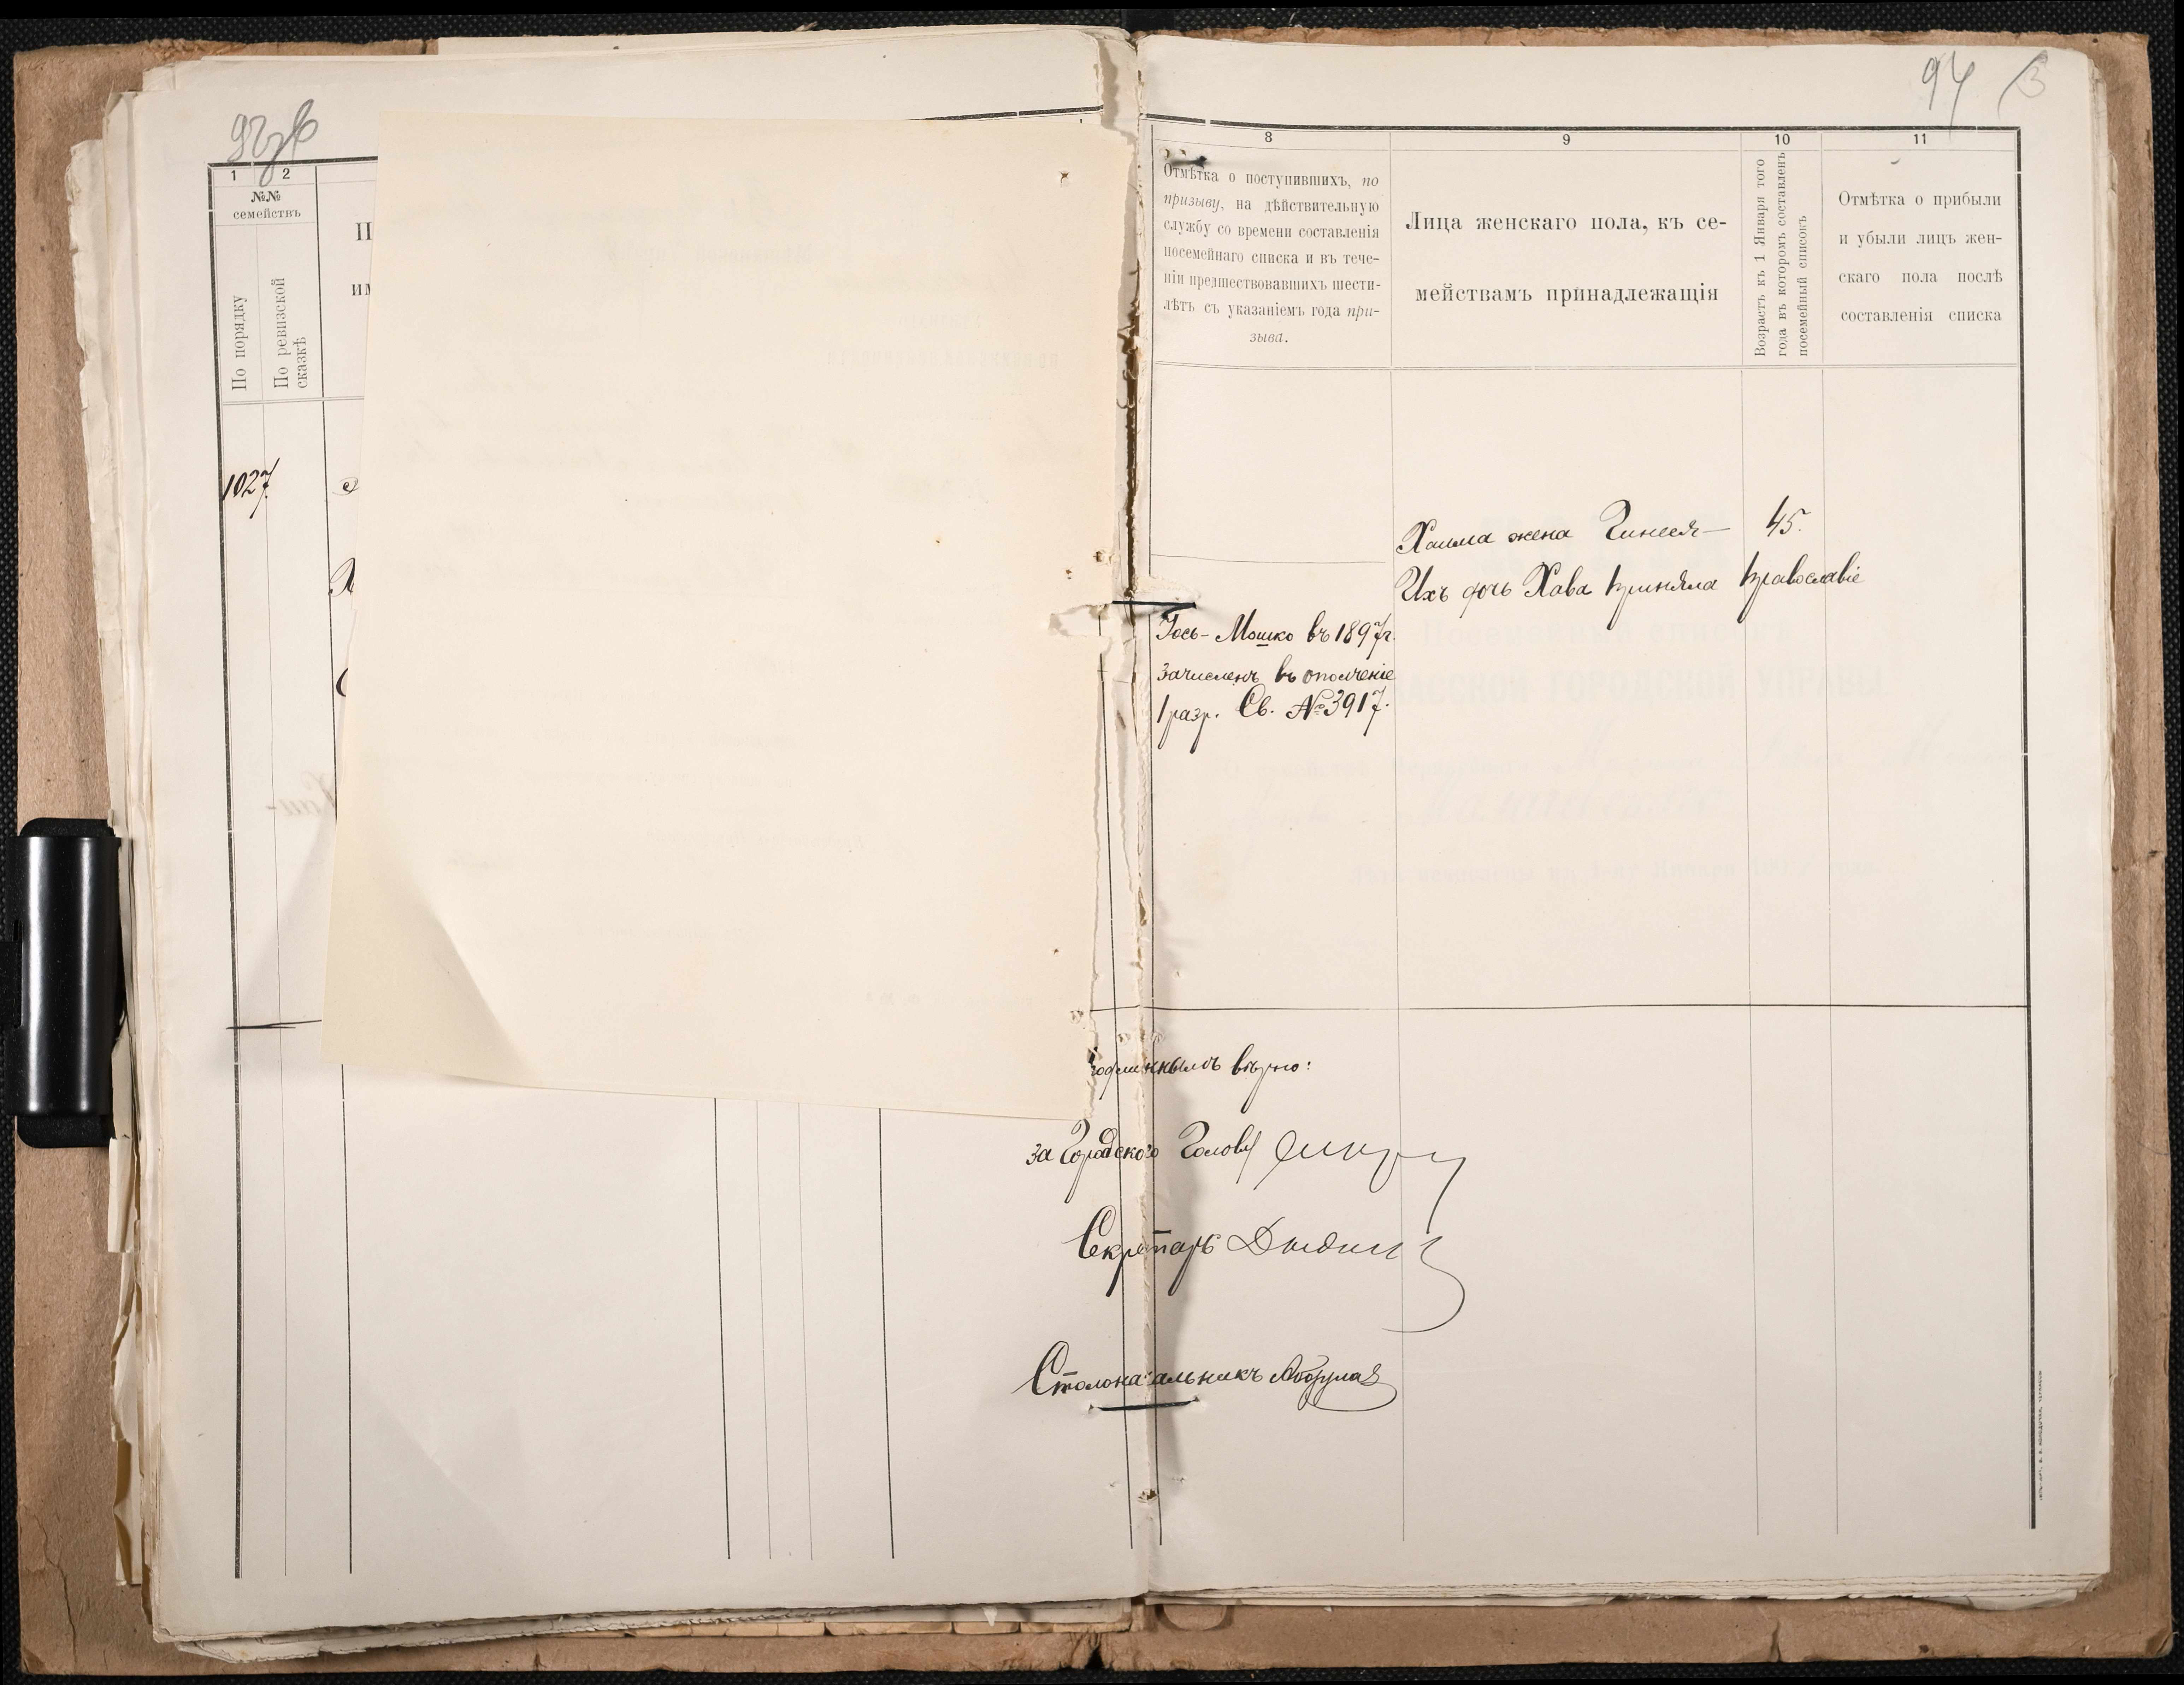 94
1
2
№№
семействъ
По порядку
По ревизской
сказкѣ
1027.
8
Отмѣтка о поступившихъ, по
призыву, на дѣйствительную
службу со времени составленія
посемейнаго списка и въ тече-
ніи предшествовавшихъ шести-
лѣтъ съ указаніемъ года при-
зыва.
9
Лица женскаго пола, къ се-
мействамъ принадлежащія
10
Возрастъ къ 1 Января того
года въ которомъ составленъ
посемейный списокъ
11
Отмѣтка о прибыли
и убыли лицъ жен-
скаго пола послѣ
составленія списка
Хаима жена Гинеся — 45.
Ихъ дочь Хава приняла православіе
Іось-Мошко въ 1897г.
зачисленъ въ ополченіе
1 разр. Св. № 3917.
одлиннымъ вѣрно:
за Городского Голову
Секретарь
Столоначальникъ